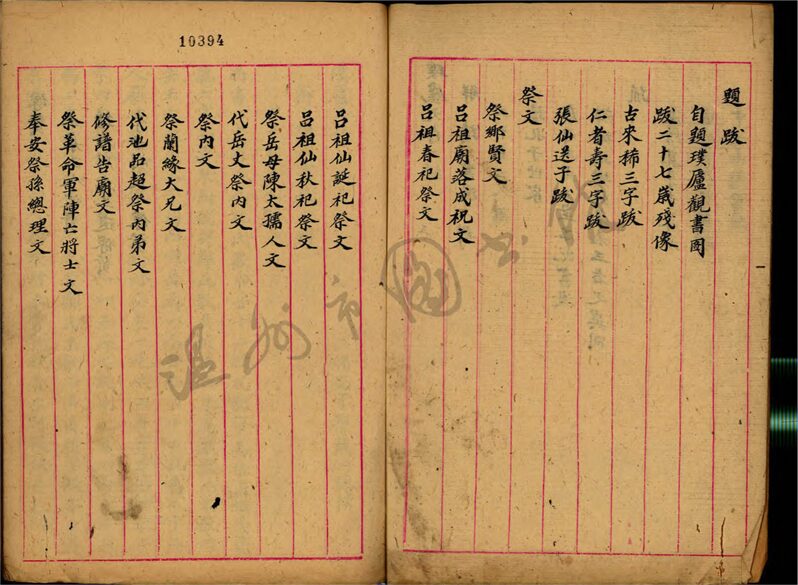 題跋
自題璞廬觀書圖
跋二十七歲殘像
古來稀三字跋
仁者壽三字跋
張仙送子跋
祭文
祭鄉賢文
呂祖廟落成祝文
呂祖春祀祭文
10394
呂祖仙誕祀祭文
呂祖仙秋祀祭文
祭岳母陳太孺人文
代岳丈祭內文
祭內文
祭蘭緣大兄文
代池品超祭內弟文
修譜告廟文
祭革命軍陣亡將士文
奉安祭孫總理文
溫州市圖书館